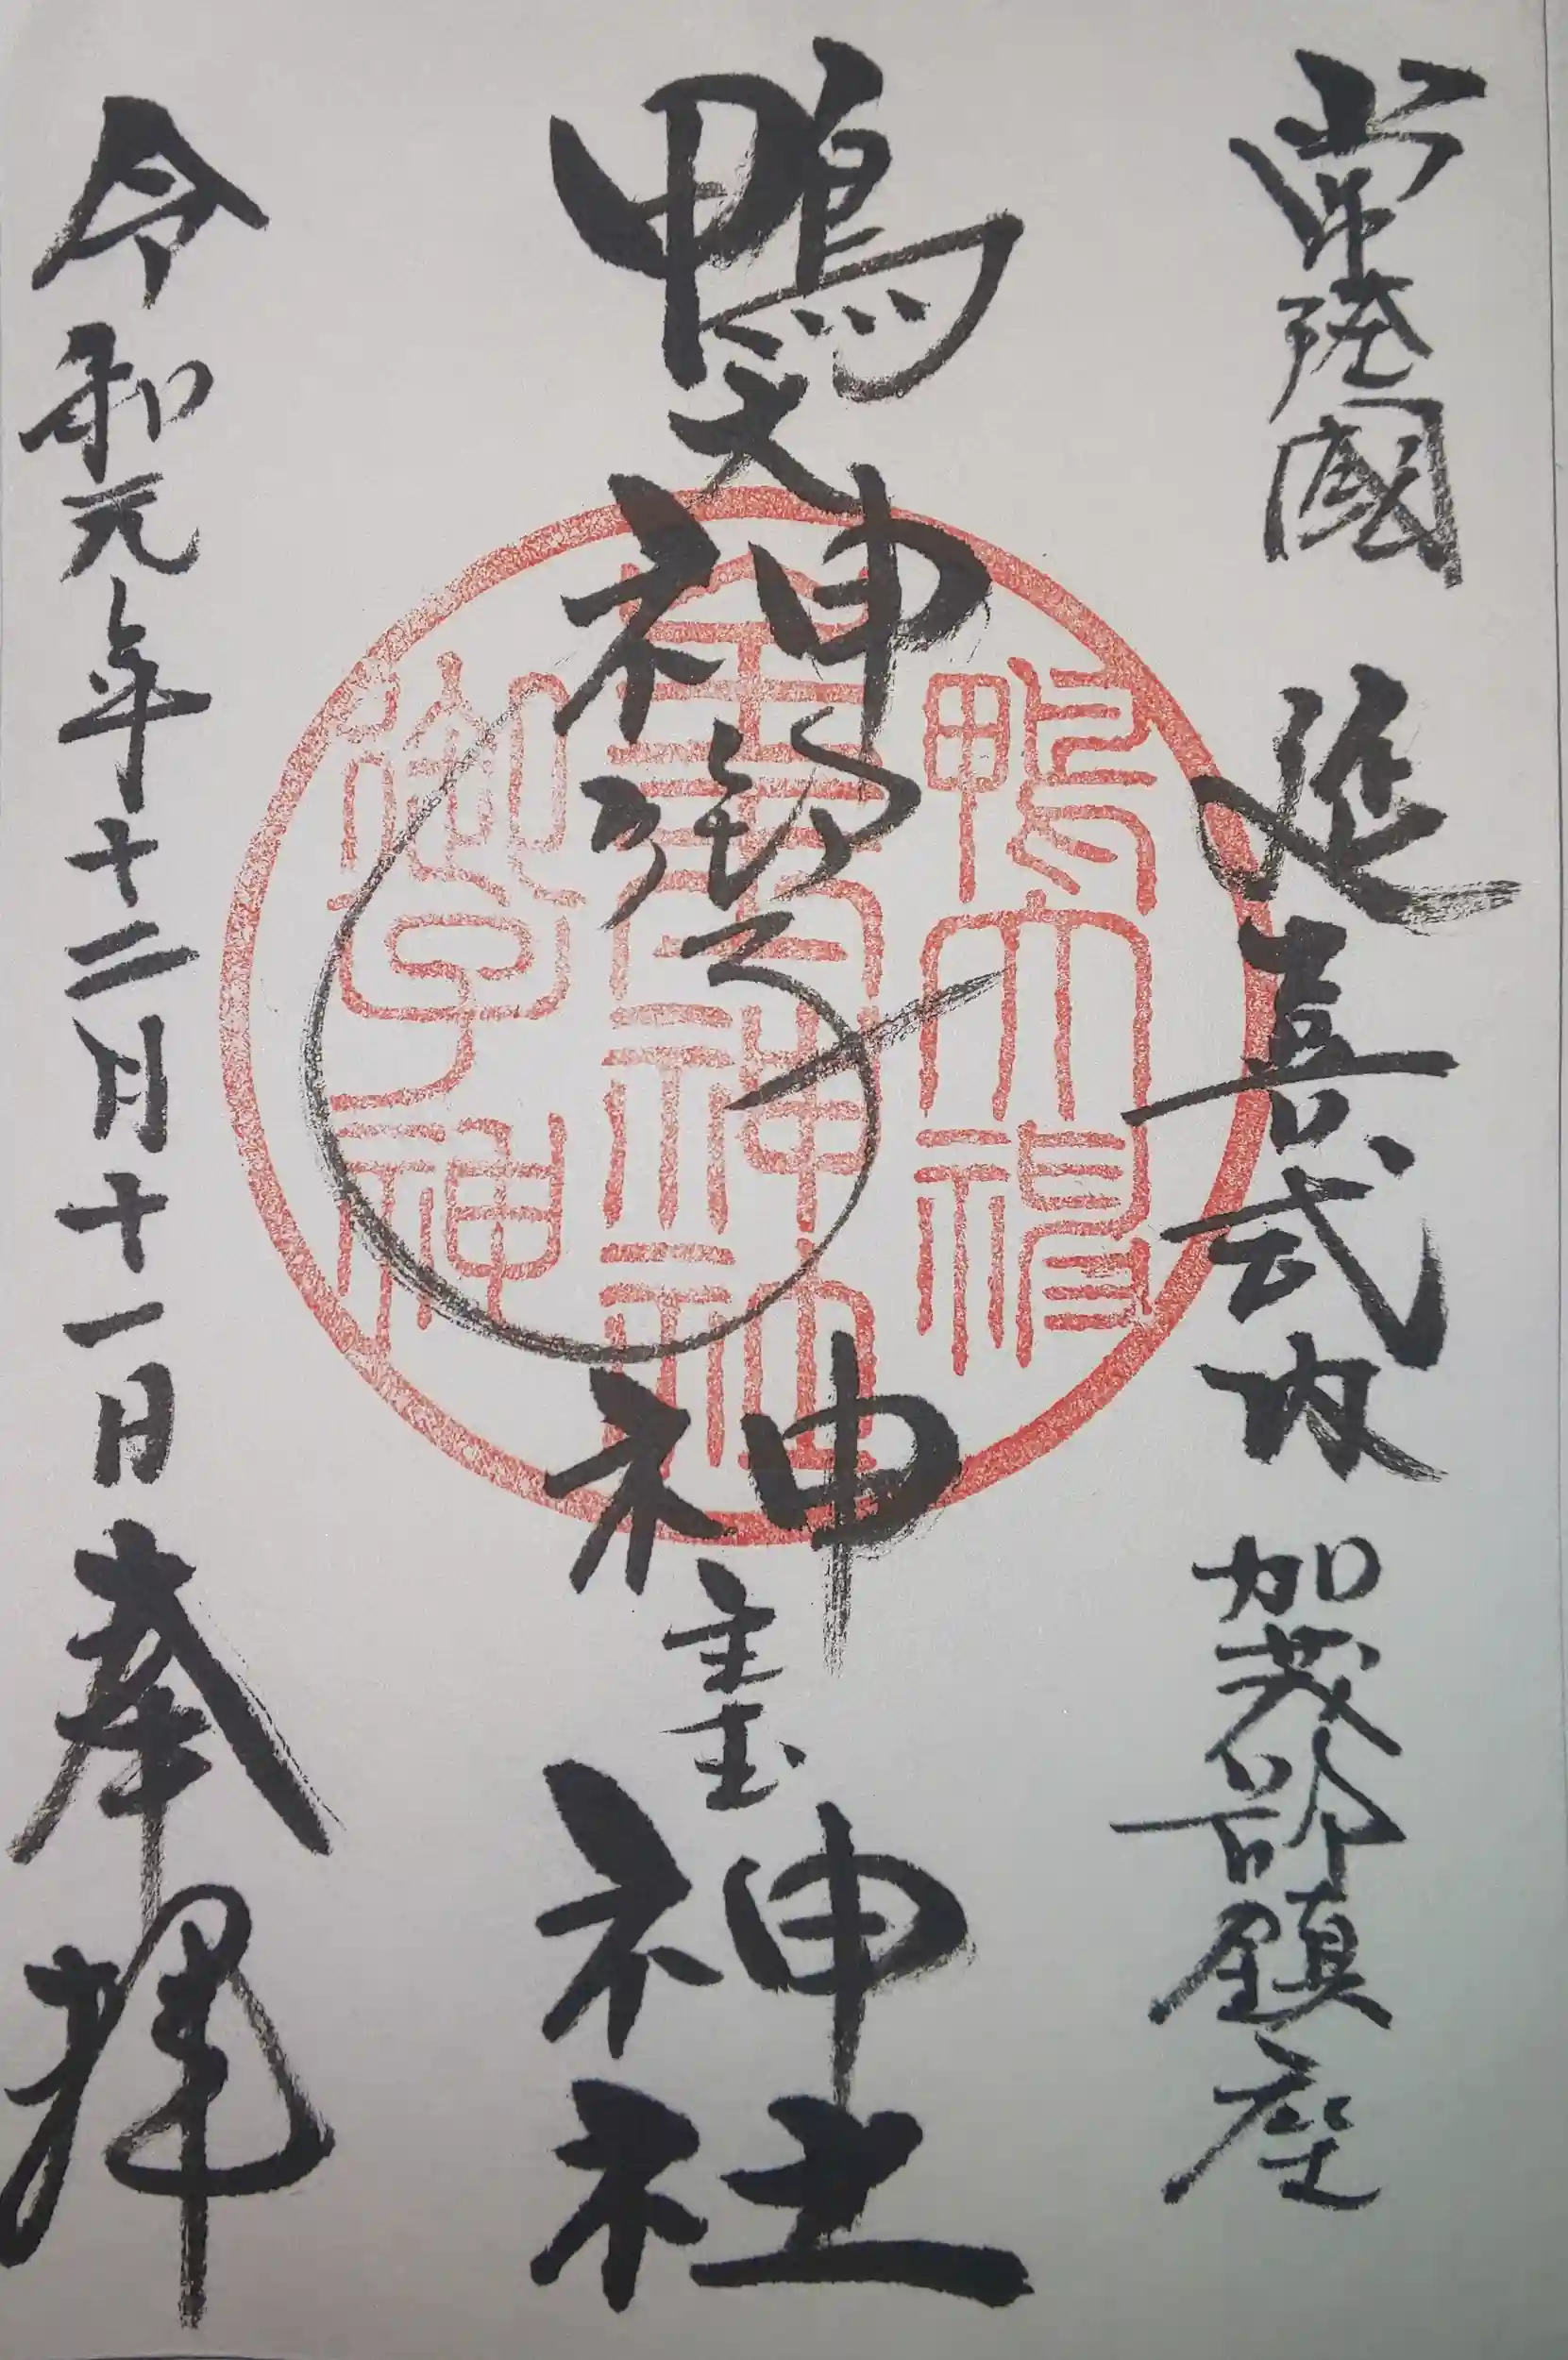 常陸國 延喜式内 加茂部鎮座
鴨大神御子神主玉神社
令和元年十二月十一日 奉拝
鴨大神
御子神